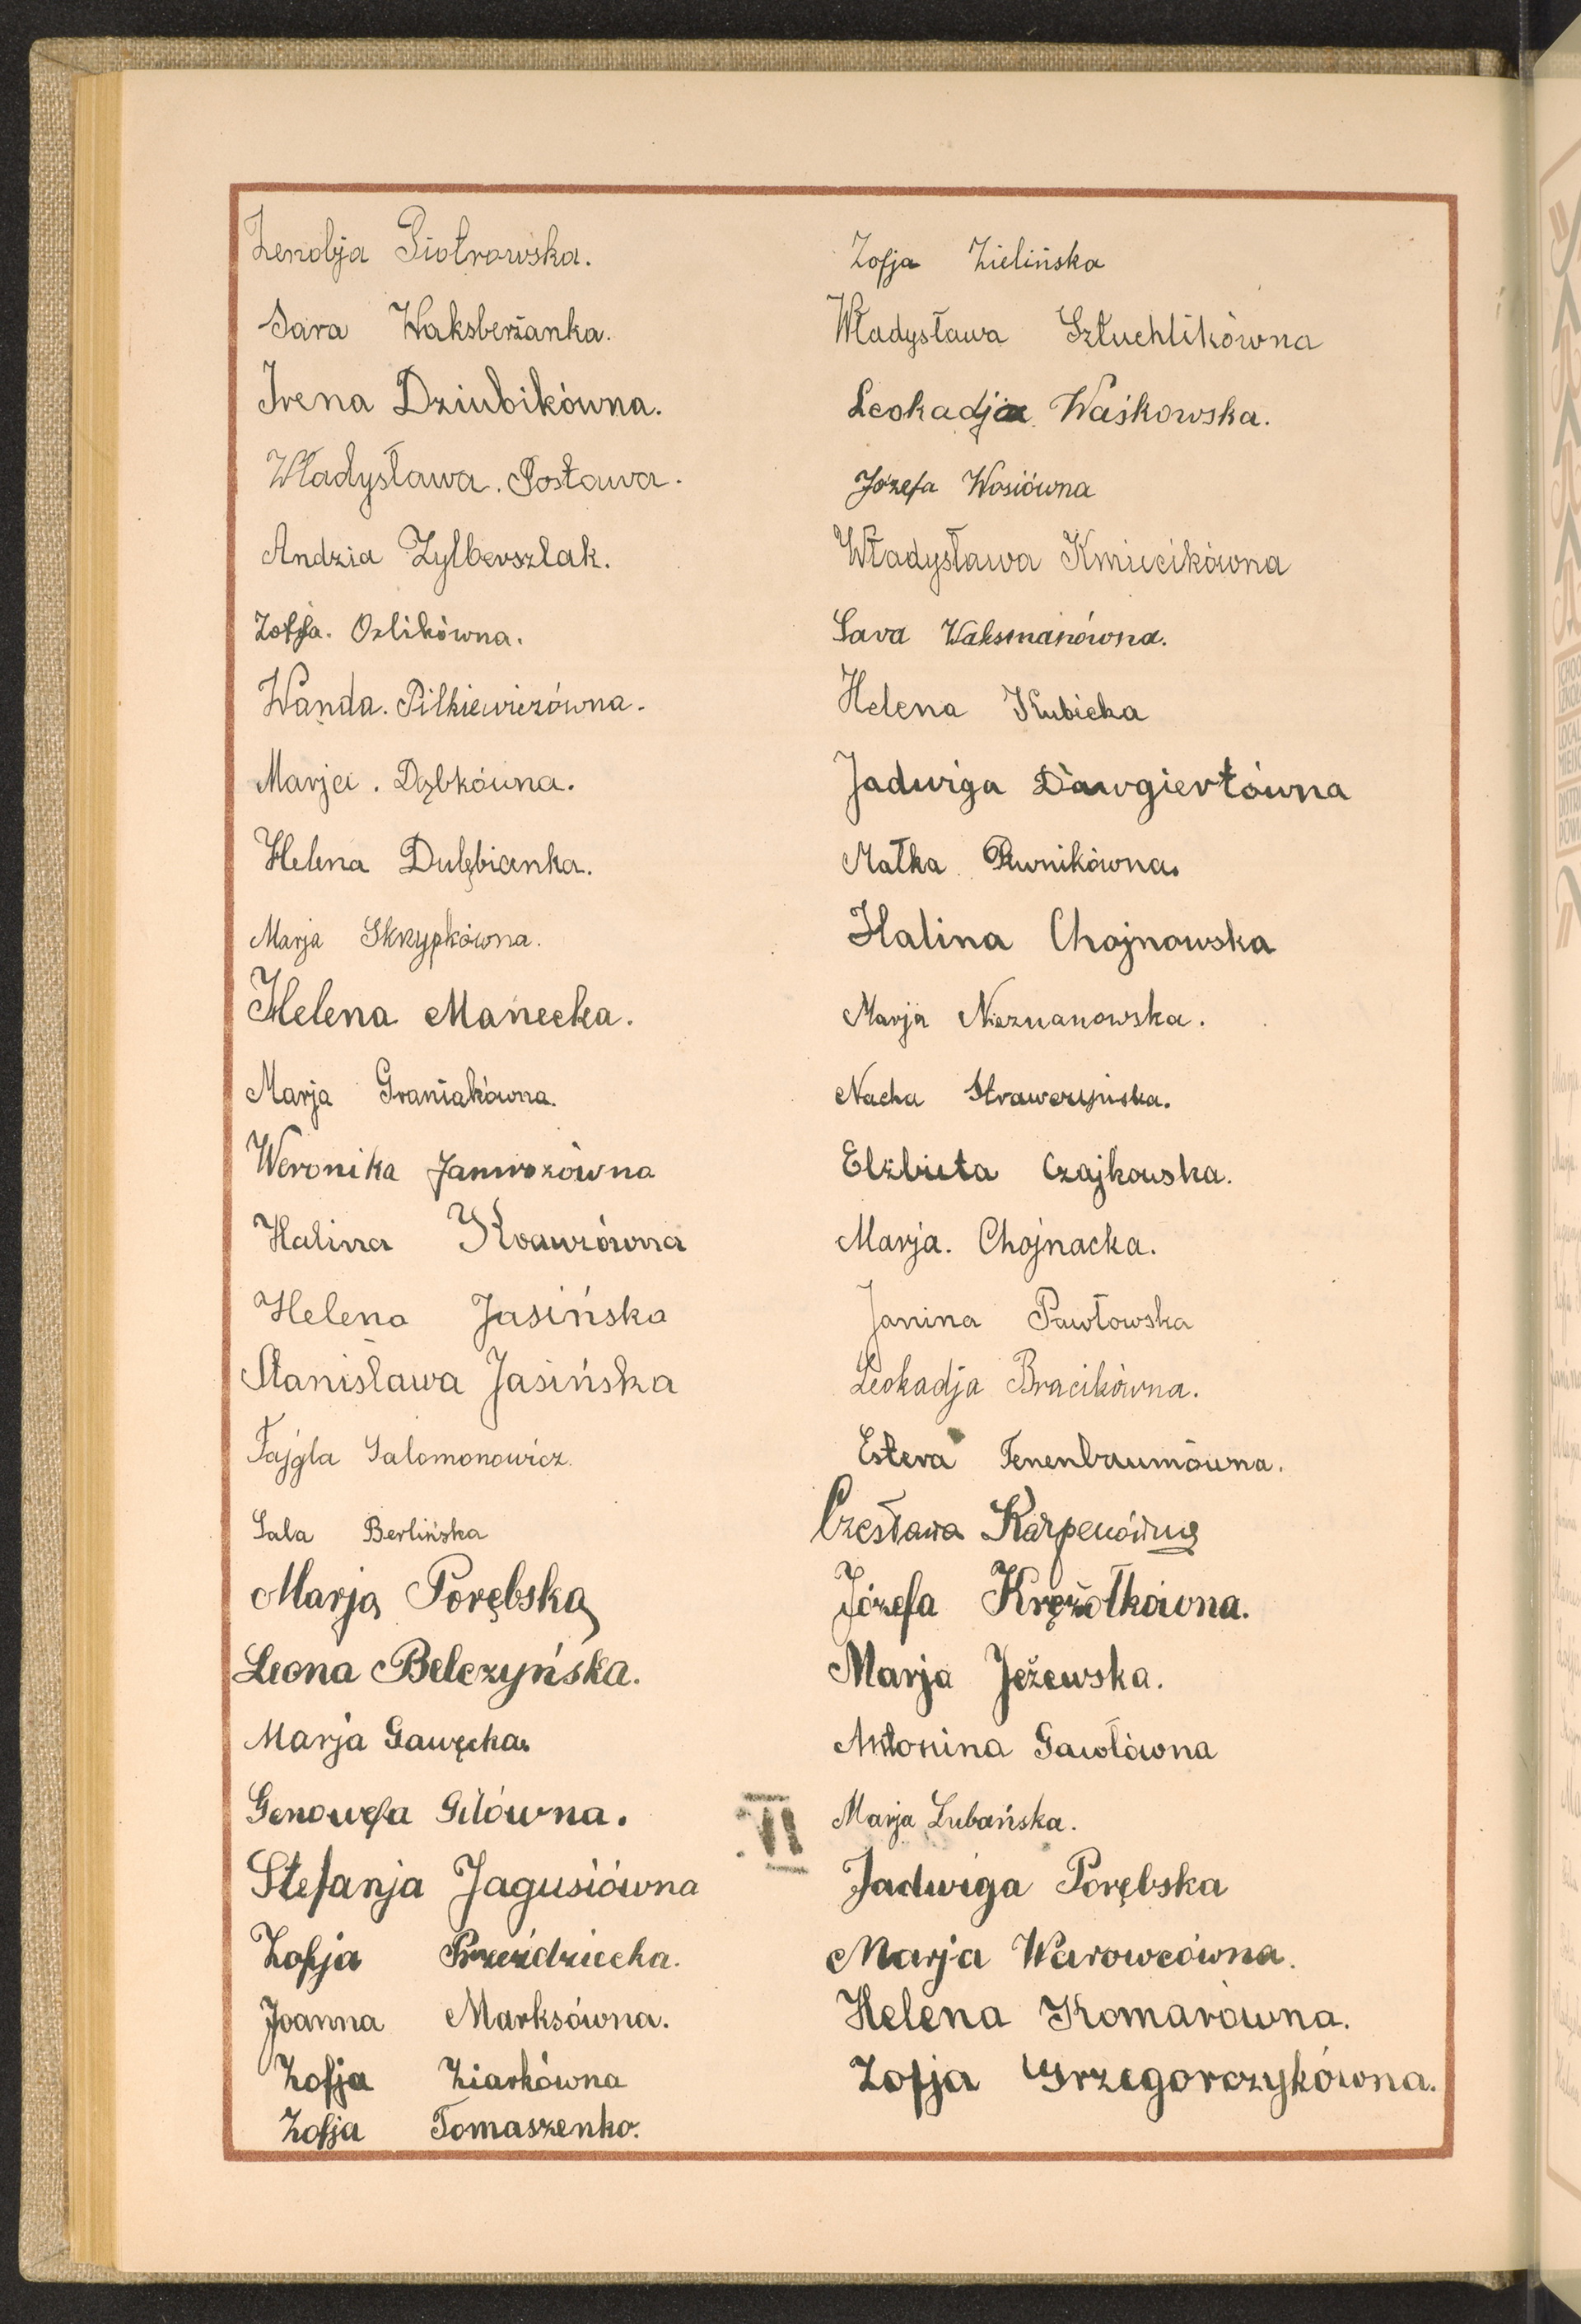 Zenobja Piotrowska.
Sara Waksberżanka.
Irena Dziubikówna.
Władysława. Postawa.
Andzia Zylberszlak.
Zofja. Orlikówna.
Wanda. Pilkiewiczówna.
Marja. Dąbkówna.
Helena Dulębianka.
Marja Skrzypkówna.
Helena Manecka.
Marja Graniakówna.
Weronika Jamrozówna
Halina Krawzówna
Helena Jasińska
Stanisława Jasińska
Fajgla Salomonowicz.
Sala Berlińska
Marja Porębska
Leona Belczyńska.
Marja Gawęcka.
Genowefa Gilówna.
Stefanja Jagusiówna
Zofja Przeździecka.
Joanna Marksówna.
Zofja Ziarkówna
Zofja Tomaszenko.
Zofja Zielińska
Władysława Sztuchlikówna
Leokadja Waśkowska.
Józefa Wosiówna
Władysława Kmiecikówna
Sara Waksmanówna.
Helena Kubicka
Jadwiga Dawgiertówna
Małka Rewnikówna.
Halina Chojnowska
Marja Nieznanowska.
Nacha Strawczyńska.
Elżbieta Czajkowska.
Marja. Chojnacka.
Janina Pawłowska
Leokadja Bracikówna.
Estera Tenenbaumówna.
Czesława Karpenówna
Józefa Krężołkówna.
Marja Jeżewska.
Antonina Gawłówna
VI
Marja Lubańska.
Jadwiga Porębska
Marja Warowcówna.
Helena Komarówna.
Zofja Grzegorczykówna.